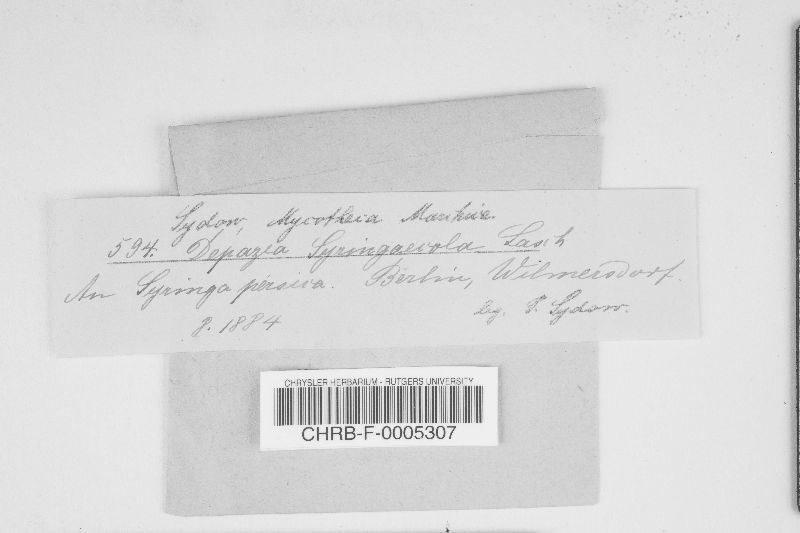 Sydow, Mycotheca Marchica.
594. Depazea Syringaecola Lasch
An Syringa persica. Berlin, Wilmersdorf.
8. 1884
Leg. P. Sydow.
CHRYSLER HERBARIUM - RUTGERS UNIVERSITY
CHRB-F-0005307